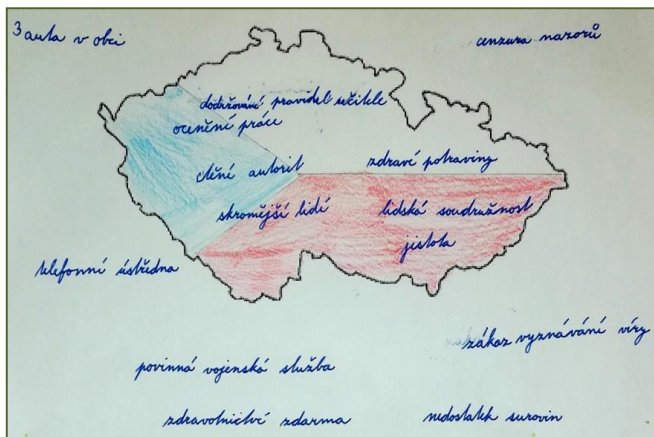 3 auta v obci
cenzura nazorů
dodržování pravidel učitele
ocenění práce
ctění autorit
zdravé potraviny
skromější lidí
lidská soudružnost
jistota
telefonní ústředna
zákaz vyznávání víry
povinná vojenská služba
zdravotnictví zdarma
nedostatek surovin